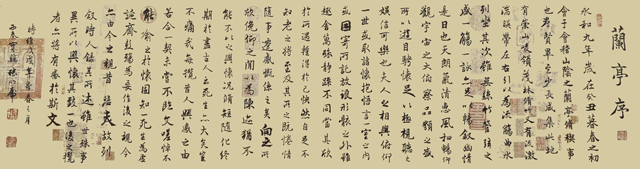 蘭亭序
永和九年歲在癸丑暮春之初
會于會稽山陰之蘭亭脩稧事
也群賢畢至少長咸集此地
有崇山峻領茂林脩竹又有清流激
湍暎帶左右引以為流觴曲水
列坐其次雖無絲竹管弦之
盛一觴一詠亦足以暢敘幽情
是日也天朗氣清惠風和暢仰
觀宇宙之大俯察品類之盛
所以遊目騁懷足以極視聽之
娛信可樂也夫人之相與俯仰
一世或取諸懷抱悟言一室之內
或因寄所託放浪形骸之外雖
趣舍萬殊靜躁不同當其欣
於所遇暫得於己快然自足不
知老之將至及其所之既惓情
隨事遷感慨係之矣向之所
欣俛仰之閒以為陳迹猶不
能不以之興懷況脩短隨化終
期於盡古人云死生亦大矣豈
不痛哉每攬昔人興感之由
若合一契未嘗不臨文嗟悼不
能喻之於懷固知一死生為虛
誕齊彭殤為妄作後之視今
亦由今之視昔悲夫故列
敘時人錄其所述雖世殊事
異所以興懷其致一也後之攬
者亦將有感於斯文